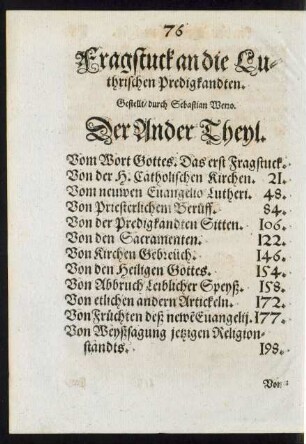 76
Fragstuck an die Lu-
thrischen Predigkandten.
Gestellt/durch Sebastian Wero.
Der Ander Theyl.
Vom Wort Gottes. Das erst Fragstuck.
Von der H. Catholischen Kirchen. 21.
Vom neuwen Euangelio Lutheri. 48.
Von Priesterlichem Berüff. 84.
Von der Predigkandten Sitten. 106.
Von den Sacramenten. 122.
Von Kirchen Gebreüch. 146.
Von den Heiligen Gottes. 154.
Von Abbruch Leiblicher Speyß. 158.
Von etlichen andern Artickeln. 172.
Von Früchten deß newē Euangelij. 177.
Von Weyßsagung jetzigen Religion-
standts. 198.
Von